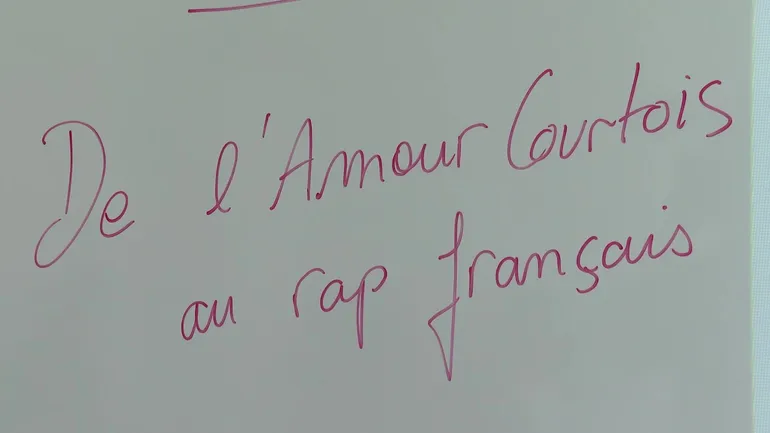 De l'Amour Courtois
au rap français